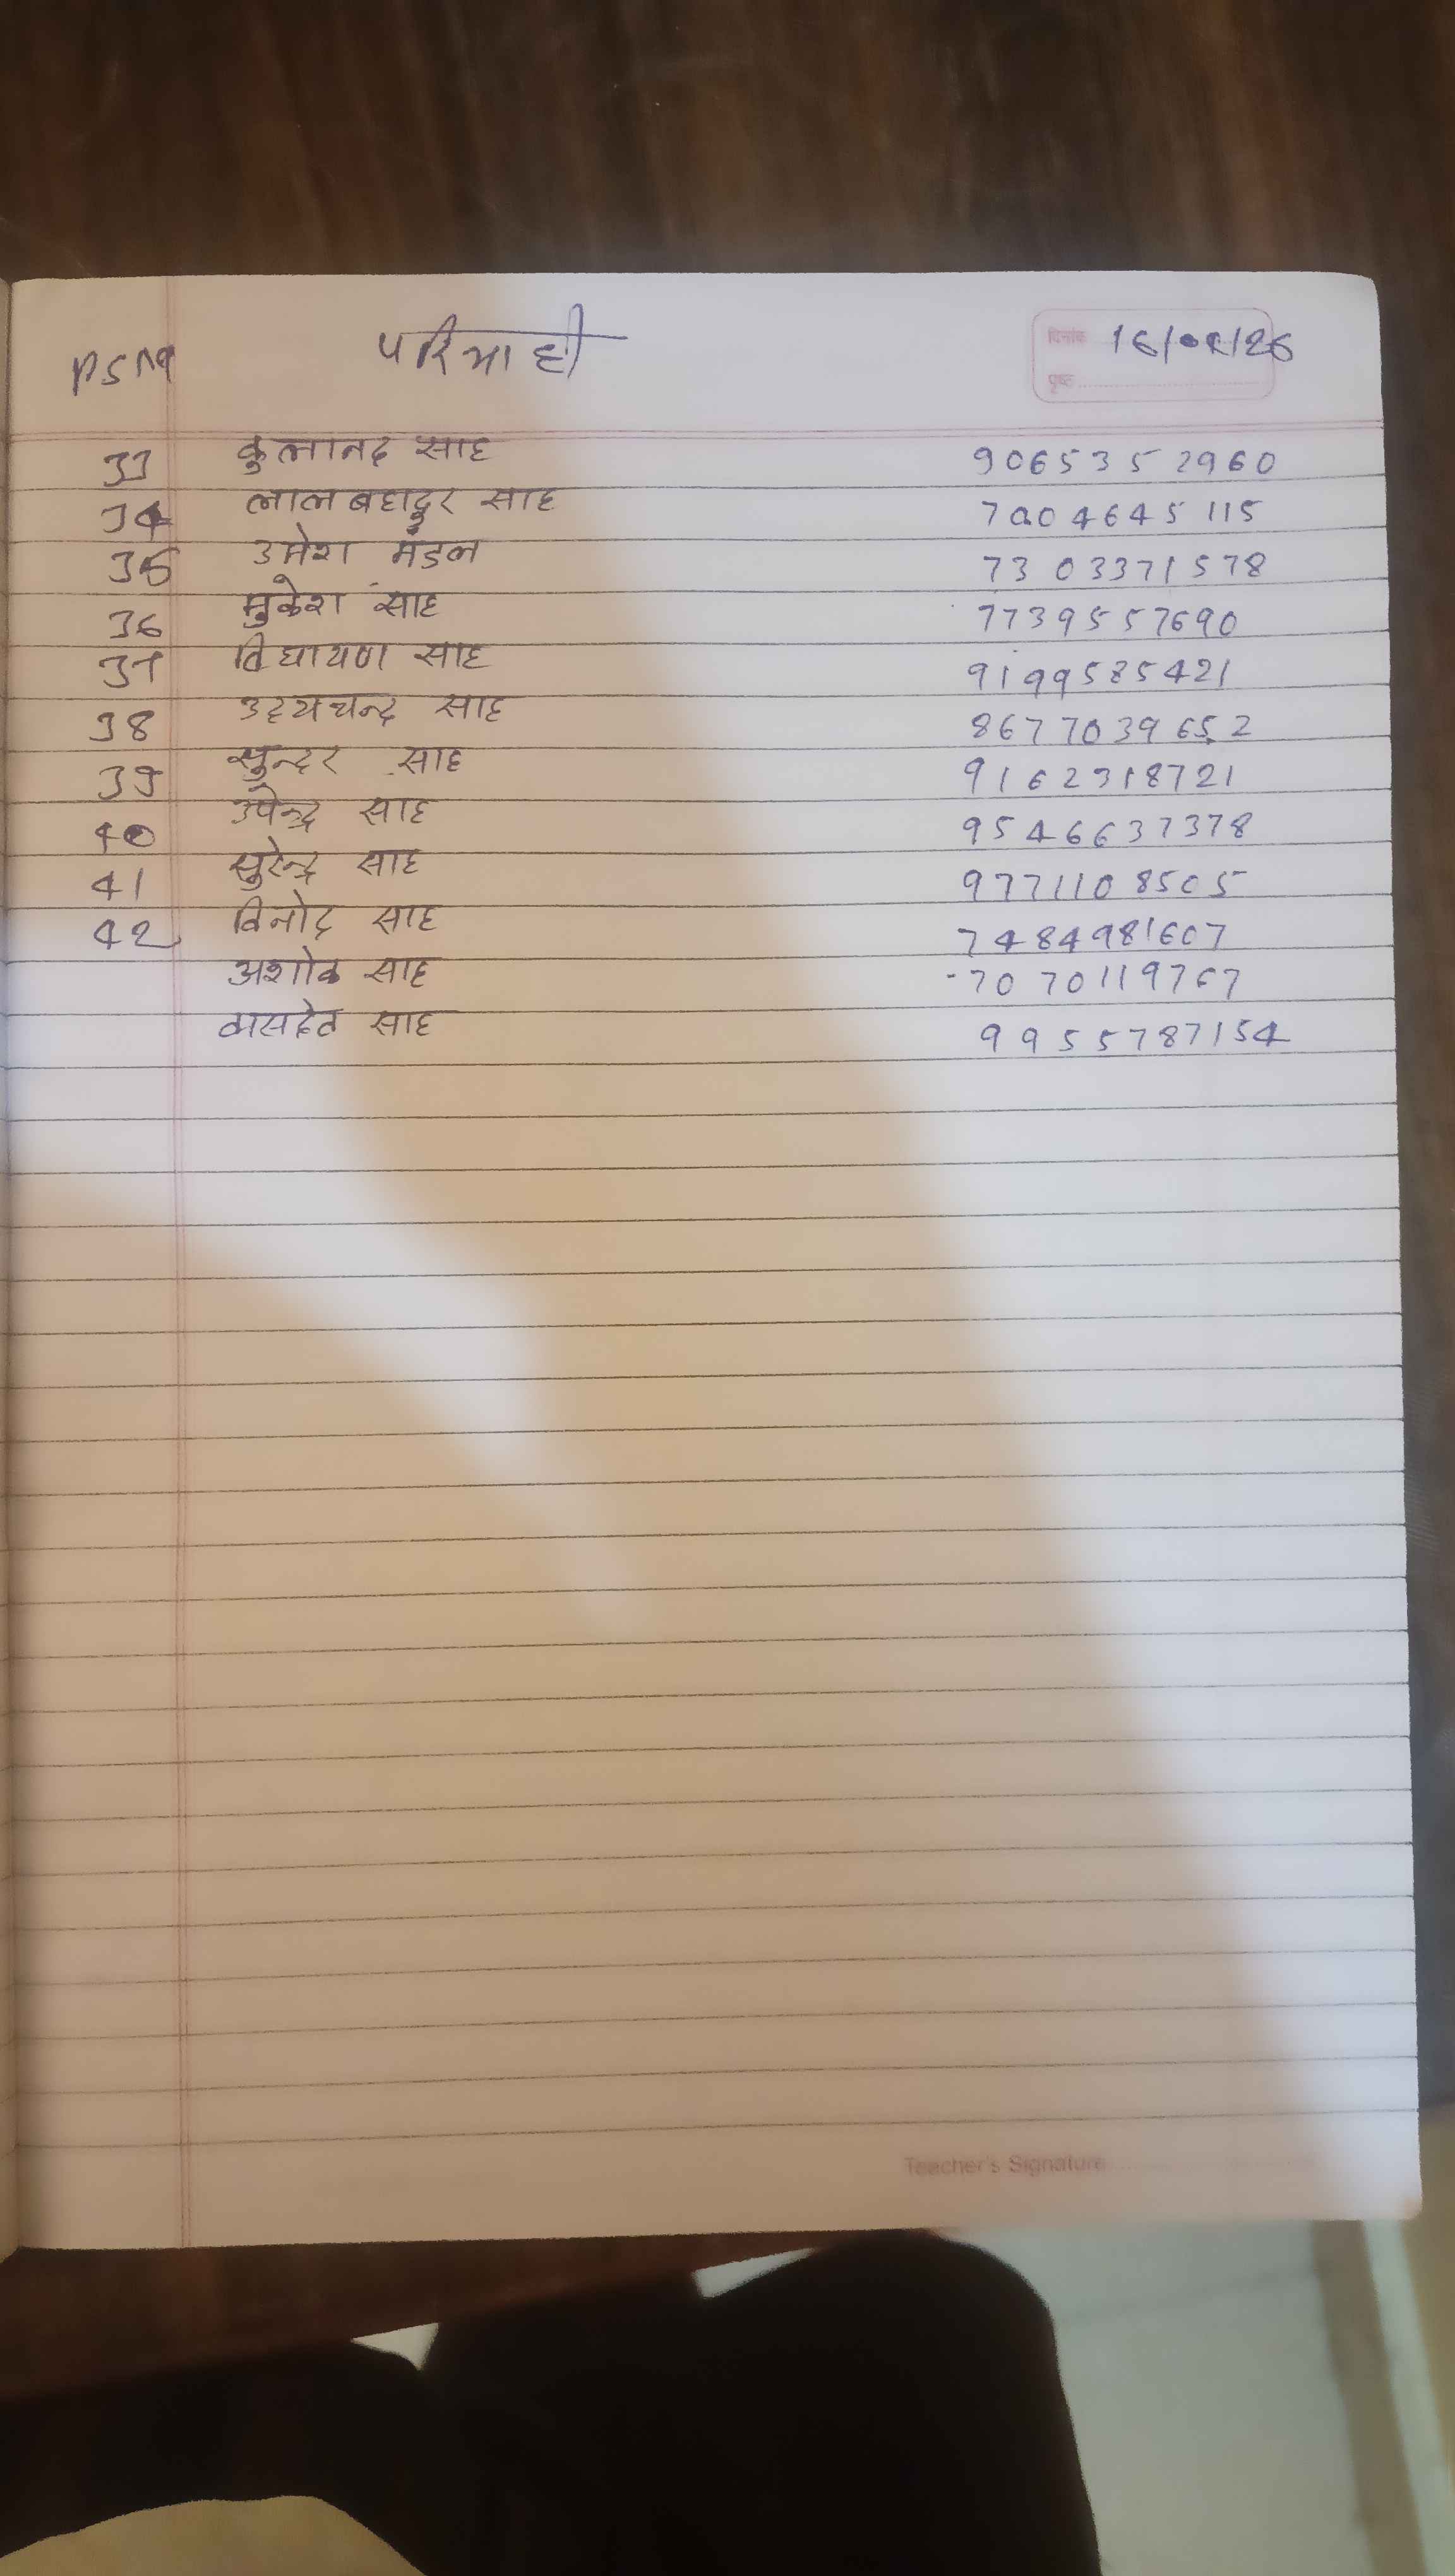 परिमाही
दिनांक 16/01/26
पृष्ठ
33 कुलानन्द साह 9065352960
34 लाल बहादुर साह 7004645115
35 उमेश मंडल 7303371578
36 मुकेश साह 7739557690
37 साह 9199585421
38 उदयचन्द्र साह 8677039652
39 सुन्दर साह 9162318721
40 उपेन्द्र साह 9546637378
41 सुरेन्द्र साह 9771108505
42 विनोद साह 7484981607
अशोक साह 7070119767
वासदेव साह 9955787154
Teacher's Signature